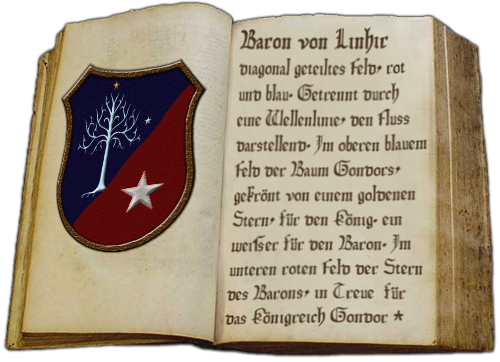 Baron von Linhir
diagonal geteiltes Feld, rot
und blau. Getrennt durch
eine Wellenlinie, den Fluss
darstellend. Im oberen blauem
Feld der Baum Gondors,
gekrönt von einem goldenen
Stern, für den König. ein
weisser für den Baron. Im
unteren roten Feld der Stern
des Barons, in Treue für
das Königreich Gondor *